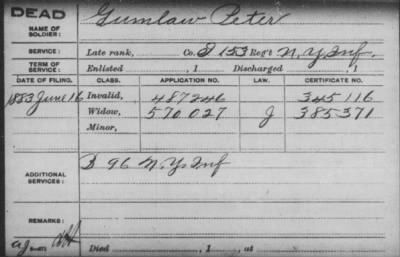 DEAD
NAME OF SOLDIER: Gumlaw Peter
SERVICE: Late rank, Co. I 153 Reg't N.Y. Inf.
TERM OF SERVICE: Enlisted , 1 Discharged , 1
DATE OF FILING. CLASS. APPLICATION NO. LAW. CERTIFICATE NO.
1883 June 16 Invalid, 487246 345116
Widow, 570027 J 385371
Minor,
ADDITIONAL SERVICES: I 96 N.Y. Inf
REMARKS:
Died , 1 , at